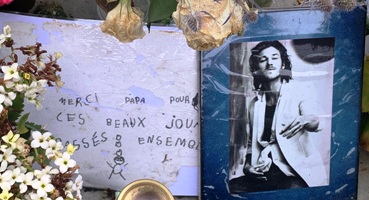 MERCI PAPA POUR
CES BEAUX JOU
PASSÉS ENSEMBL